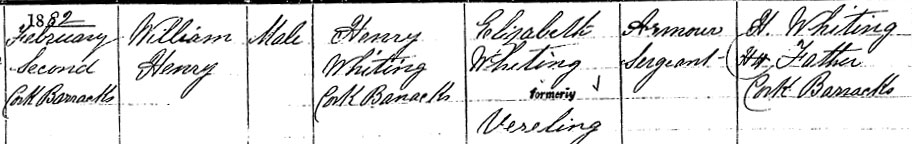 1882
February
Second
Cork Barracks
William
Henry
Male
Henry
Whiting
Cork Barracks
Elizabeth
Whiting
formerly
Vereling
Armour
Sergeant
H. Whiting
Father
Cork Barracks